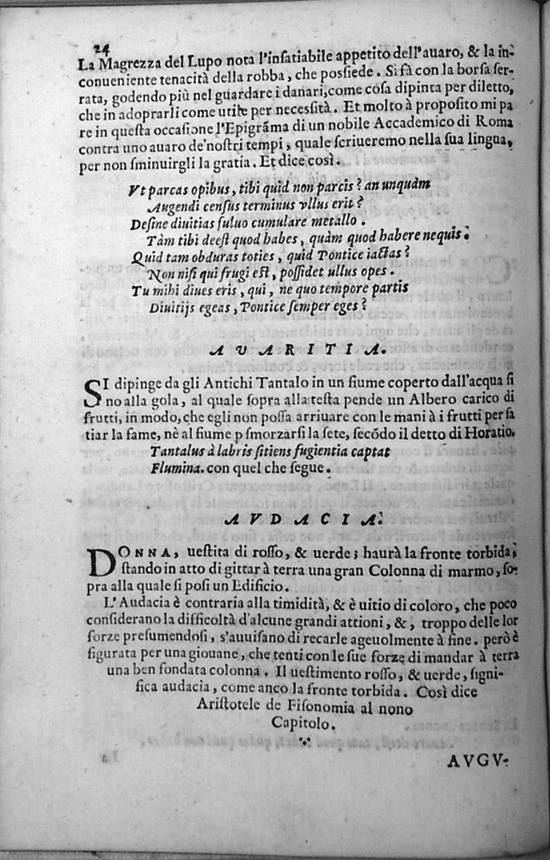 24
La Magrezza del Lupo nota l'insatiabile appetito dell'auaro, & la in-
conueniente tenacità della robba, che possiede. Si fà con la borsa ser-
rata, godendo più nel guardare i danari, come cosa dipinta per diletto,
che in adoprarli come utile per necessità. Et molto à proposito mi pa
re in questa occasione l'Epigrāma di un nobile Accademico di Roma
contra uno auaro de'nostri tempi, quale scriueremo nella sua lingua,
per non sminuirgli la gratia. Et dice così.
Vt parcas opibus, tibi quid non parcis? an unquàm
Augendi census terminus vllus erit?
Desine diuitias fuluo cumulare metallo.
Tàm tibi deest quod habes, quàm quod habere nequis.
Quid tam obduras toties, quid Pontice iactas?
Non nisi qui frugi est, possidet ullus opes.
Tu mihi diues eris, qui, ne quo tempore partis
Diuitijs egeas, Pontice semper eges?
AVARITIA.
SI dipinge da gli Antichi Tantalo in un fiume coperto dall'acqua si
no alla gola, al quale sopra alla testa pende un Albero carico di
frutti, in modo, che egli non possa arriuare con le mani à i frutti per sa
tiar la fame, nè al fiume p smorzarsi la sete, secōdo il detto di Horatio.
Tantalus à labris sitiens fugientia captat
Flumina. con quel che segue.
AVDACIA.
DONNA, uestita di rosso, & uerde; haurà la fronte torbida,
stando in atto di gittar à terra una gran Colonna di marmo, so-
pra alla quale si posi un Edificio.
L'Audacia è contraria alla timidità, & è uitio di coloro, che poco
considerano la difficoltà d'alcune grandi attioni, &, troppo delle lor
forze presumendosi, s'auuisano di recarle ageuolmente à fine. però è
figurata per una giouane, che tenti con le sue forze di mandar à terra
una ben fondata colonna. Il uestimento rosso, & uerde, signi-
fica audacia, come anco la fronte torbida. Così dice
Aristotele de Fisonomia al nono
Capitolo.
AVGV-